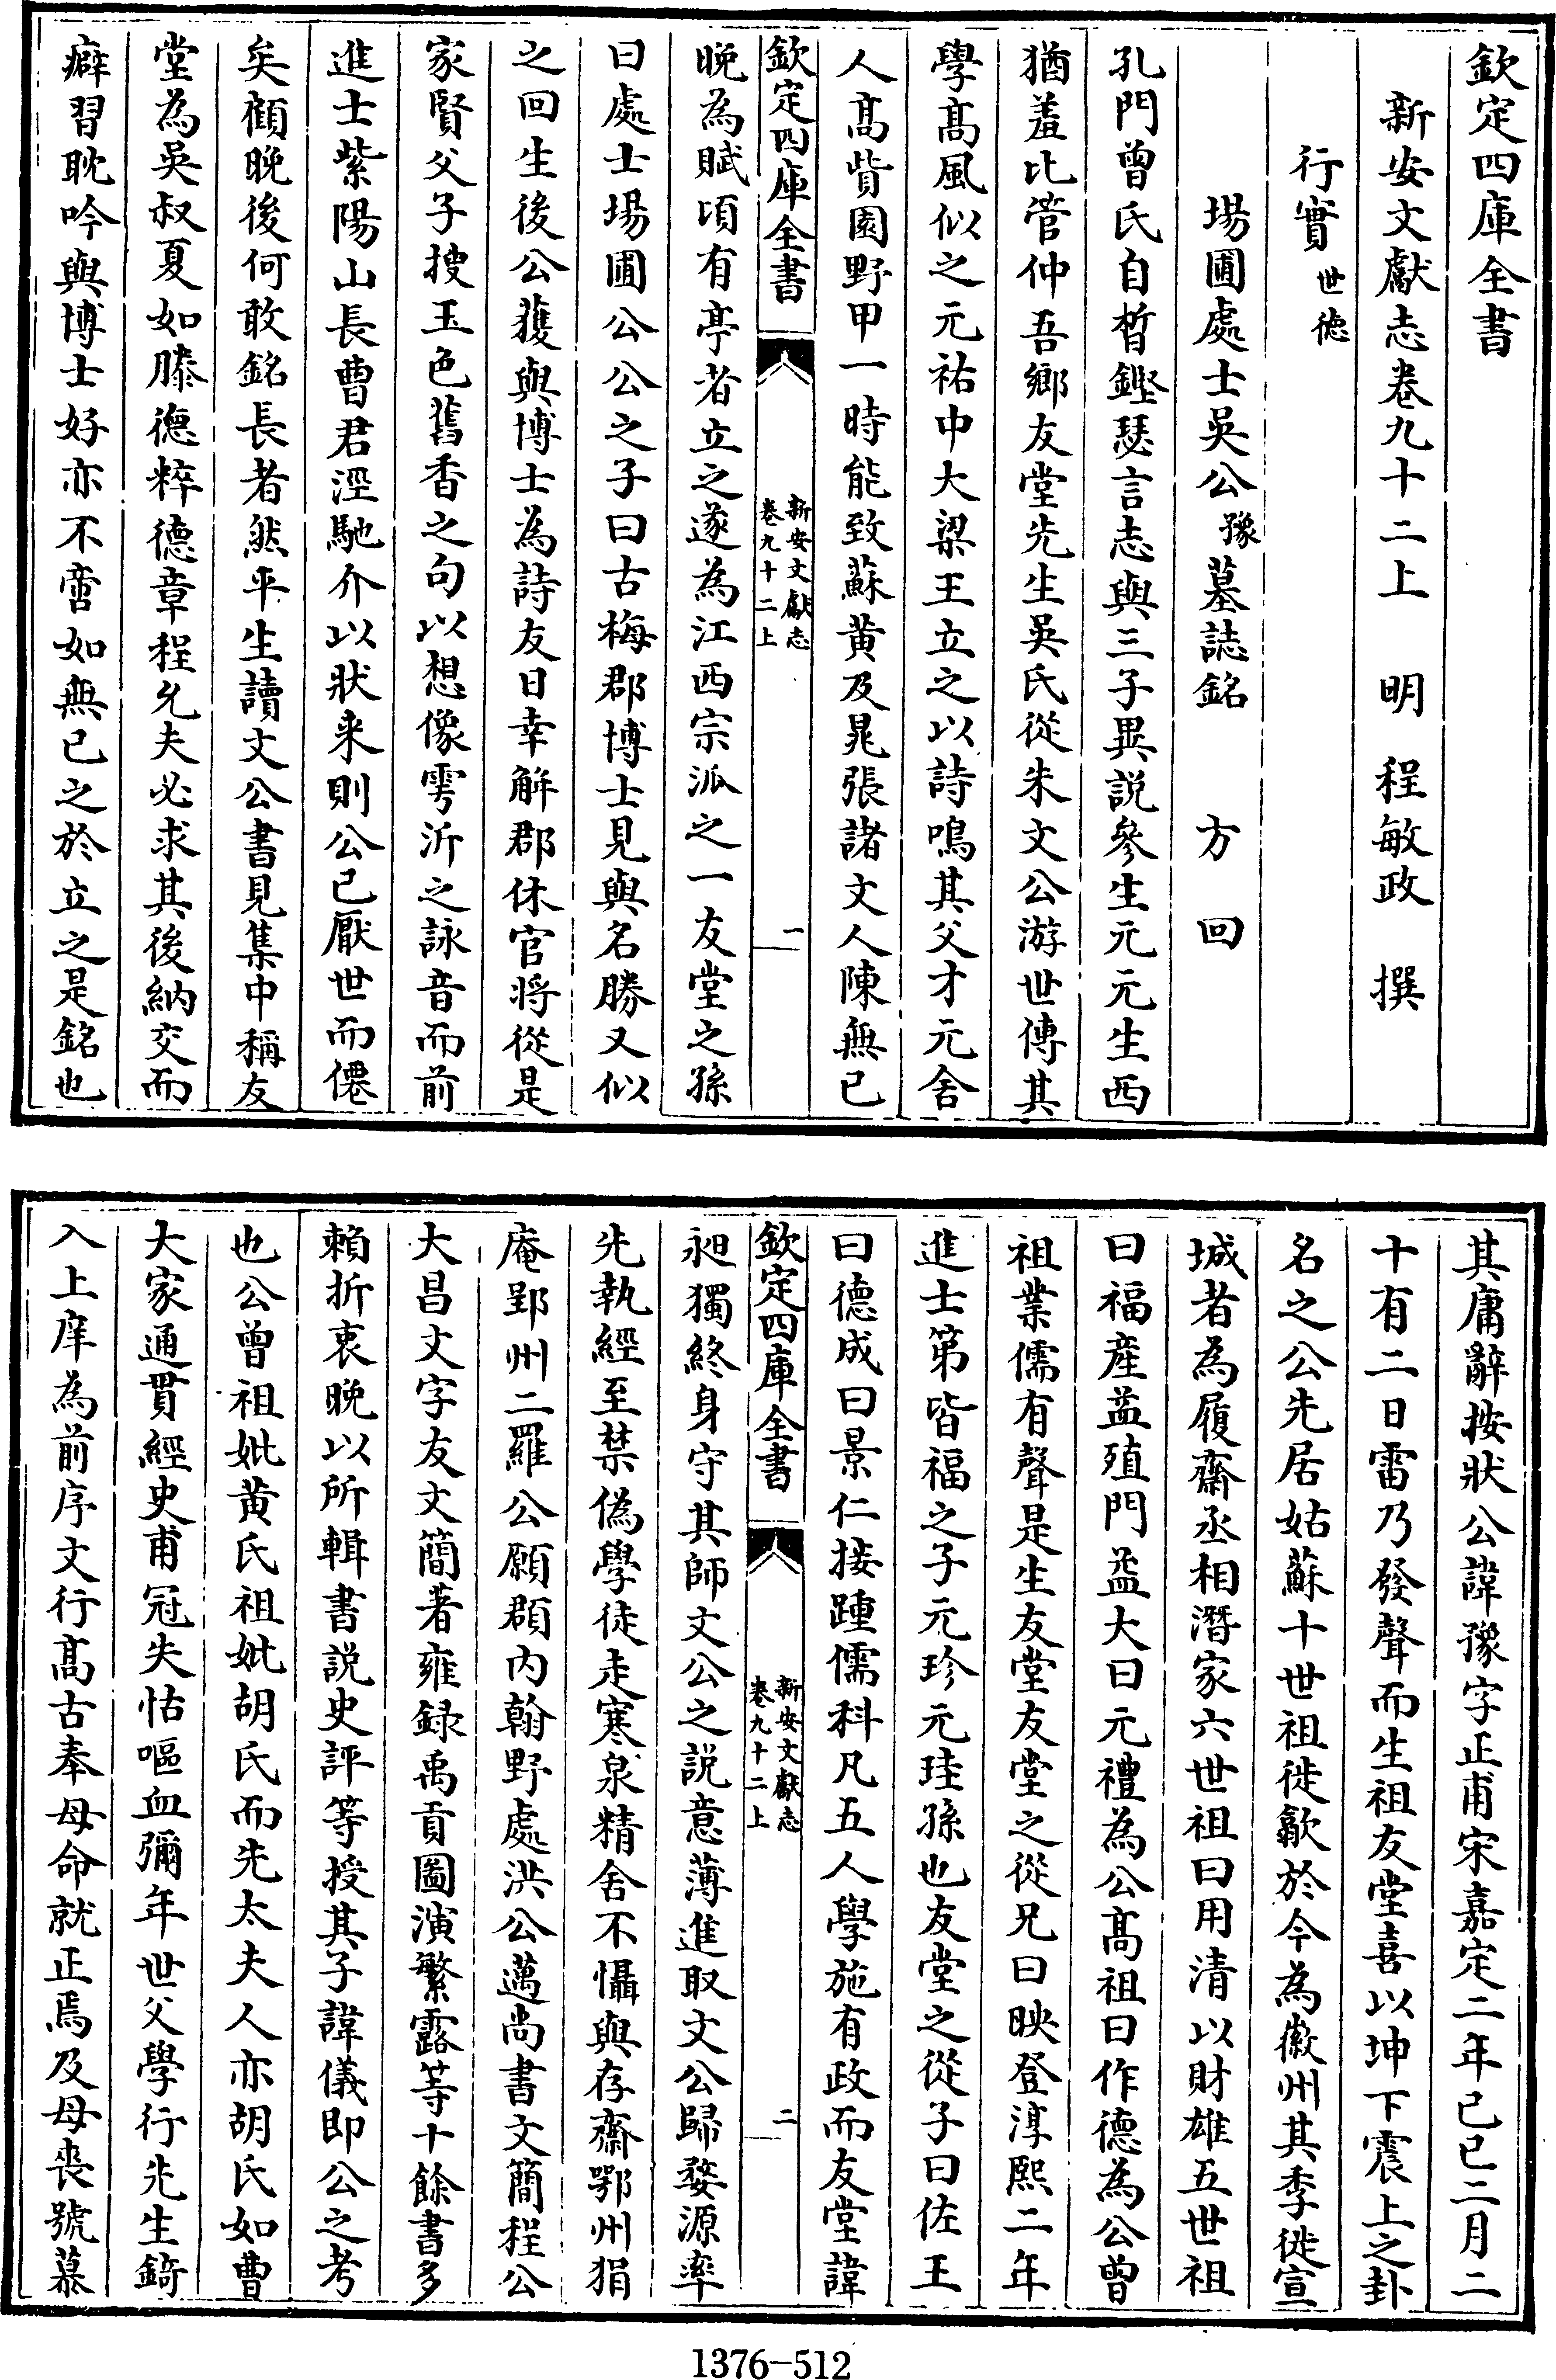 欽定四庫全書
新安文獻志卷九十二上　明　程敏政　撰
行實世德
場圃處士吳公豫墓誌銘　方　回
孔門曾氏自晳鏗瑟言志與三子異説參生元元生西
猶羞比管仲吾鄉友堂先生吳氏從朱文公游世傳其
學髙風似之元祐中大梁王立之以詩鳴其父才元舍
人髙貲園野甲一時能致蘇黄及晁張諸文人陳無已
欽定四庫全書
新安文獻志
卷九十二上
一
晚為賦頃有亭者立之遂為江西宗派之一友堂之孫
曰處士場圃公公之子曰古梅郡博士見與名勝又似
之回生後公蓫與博士為詩友日幸解郡休官将從是
家賢父子搜玉色舊香之句以想像雩沂之詠音而前
進士紫陽山長曹君涇馳介以狀来則公已厭世而僊
矣顧晚後何敢銘長者然平生讀文公書見集中稱友
堂為吳叔夏如滕德粹德章程允夫必求其後納交而
癖習耽吟與博士好亦不啻如無已之於立之是銘也
其庸辭按狀公諱豫字正甫宋嘉定二年已巳二月二
十有二日雷乃發聲而生祖友堂喜以坤下震上之卦
名之公先居姑蘇十世祖徙歙於今為徽州其季徙宣
城者為履齋丞相潛家六世祖曰用清以財雄五世祖
曰福産益殖門益大曰元禮為公髙祖曰作德為公曾
祖業儒有聲是生友堂友堂之從兄曰映登淳熙二年
進士第皆福之子元珍元珪孫也友堂之從子曰佐王
曰德成曰景仁接踵儒科凡五人學施有政而友堂諱
欽定四庫全書
新安文獻志
卷九十二上
二
昶獨終身守其師文公之説意薄進取文公歸婺源率
先執經至禁偽學徒走寒泉精舍不懾與存齋鄂州狷
庵郢州二羅公願頵内翰野處洪公邁尚書文簡程公
大昌文字友文簡著雍録禹貢圖演繁露等十餘書多
賴折衷晚以所輯書説史評等授其子諱儀即公之考
也公曾祖妣黄氏祖妣胡氏而先太夫人亦胡氏如曹
大家通貫經史甫冠失怙嘔血彌年世父學行先生錡
入上庠為前序文行髙古奉母命就正焉及母喪號慕
1376-512